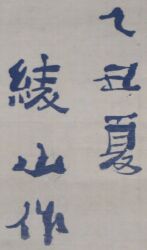 乙丑夏
綾山作